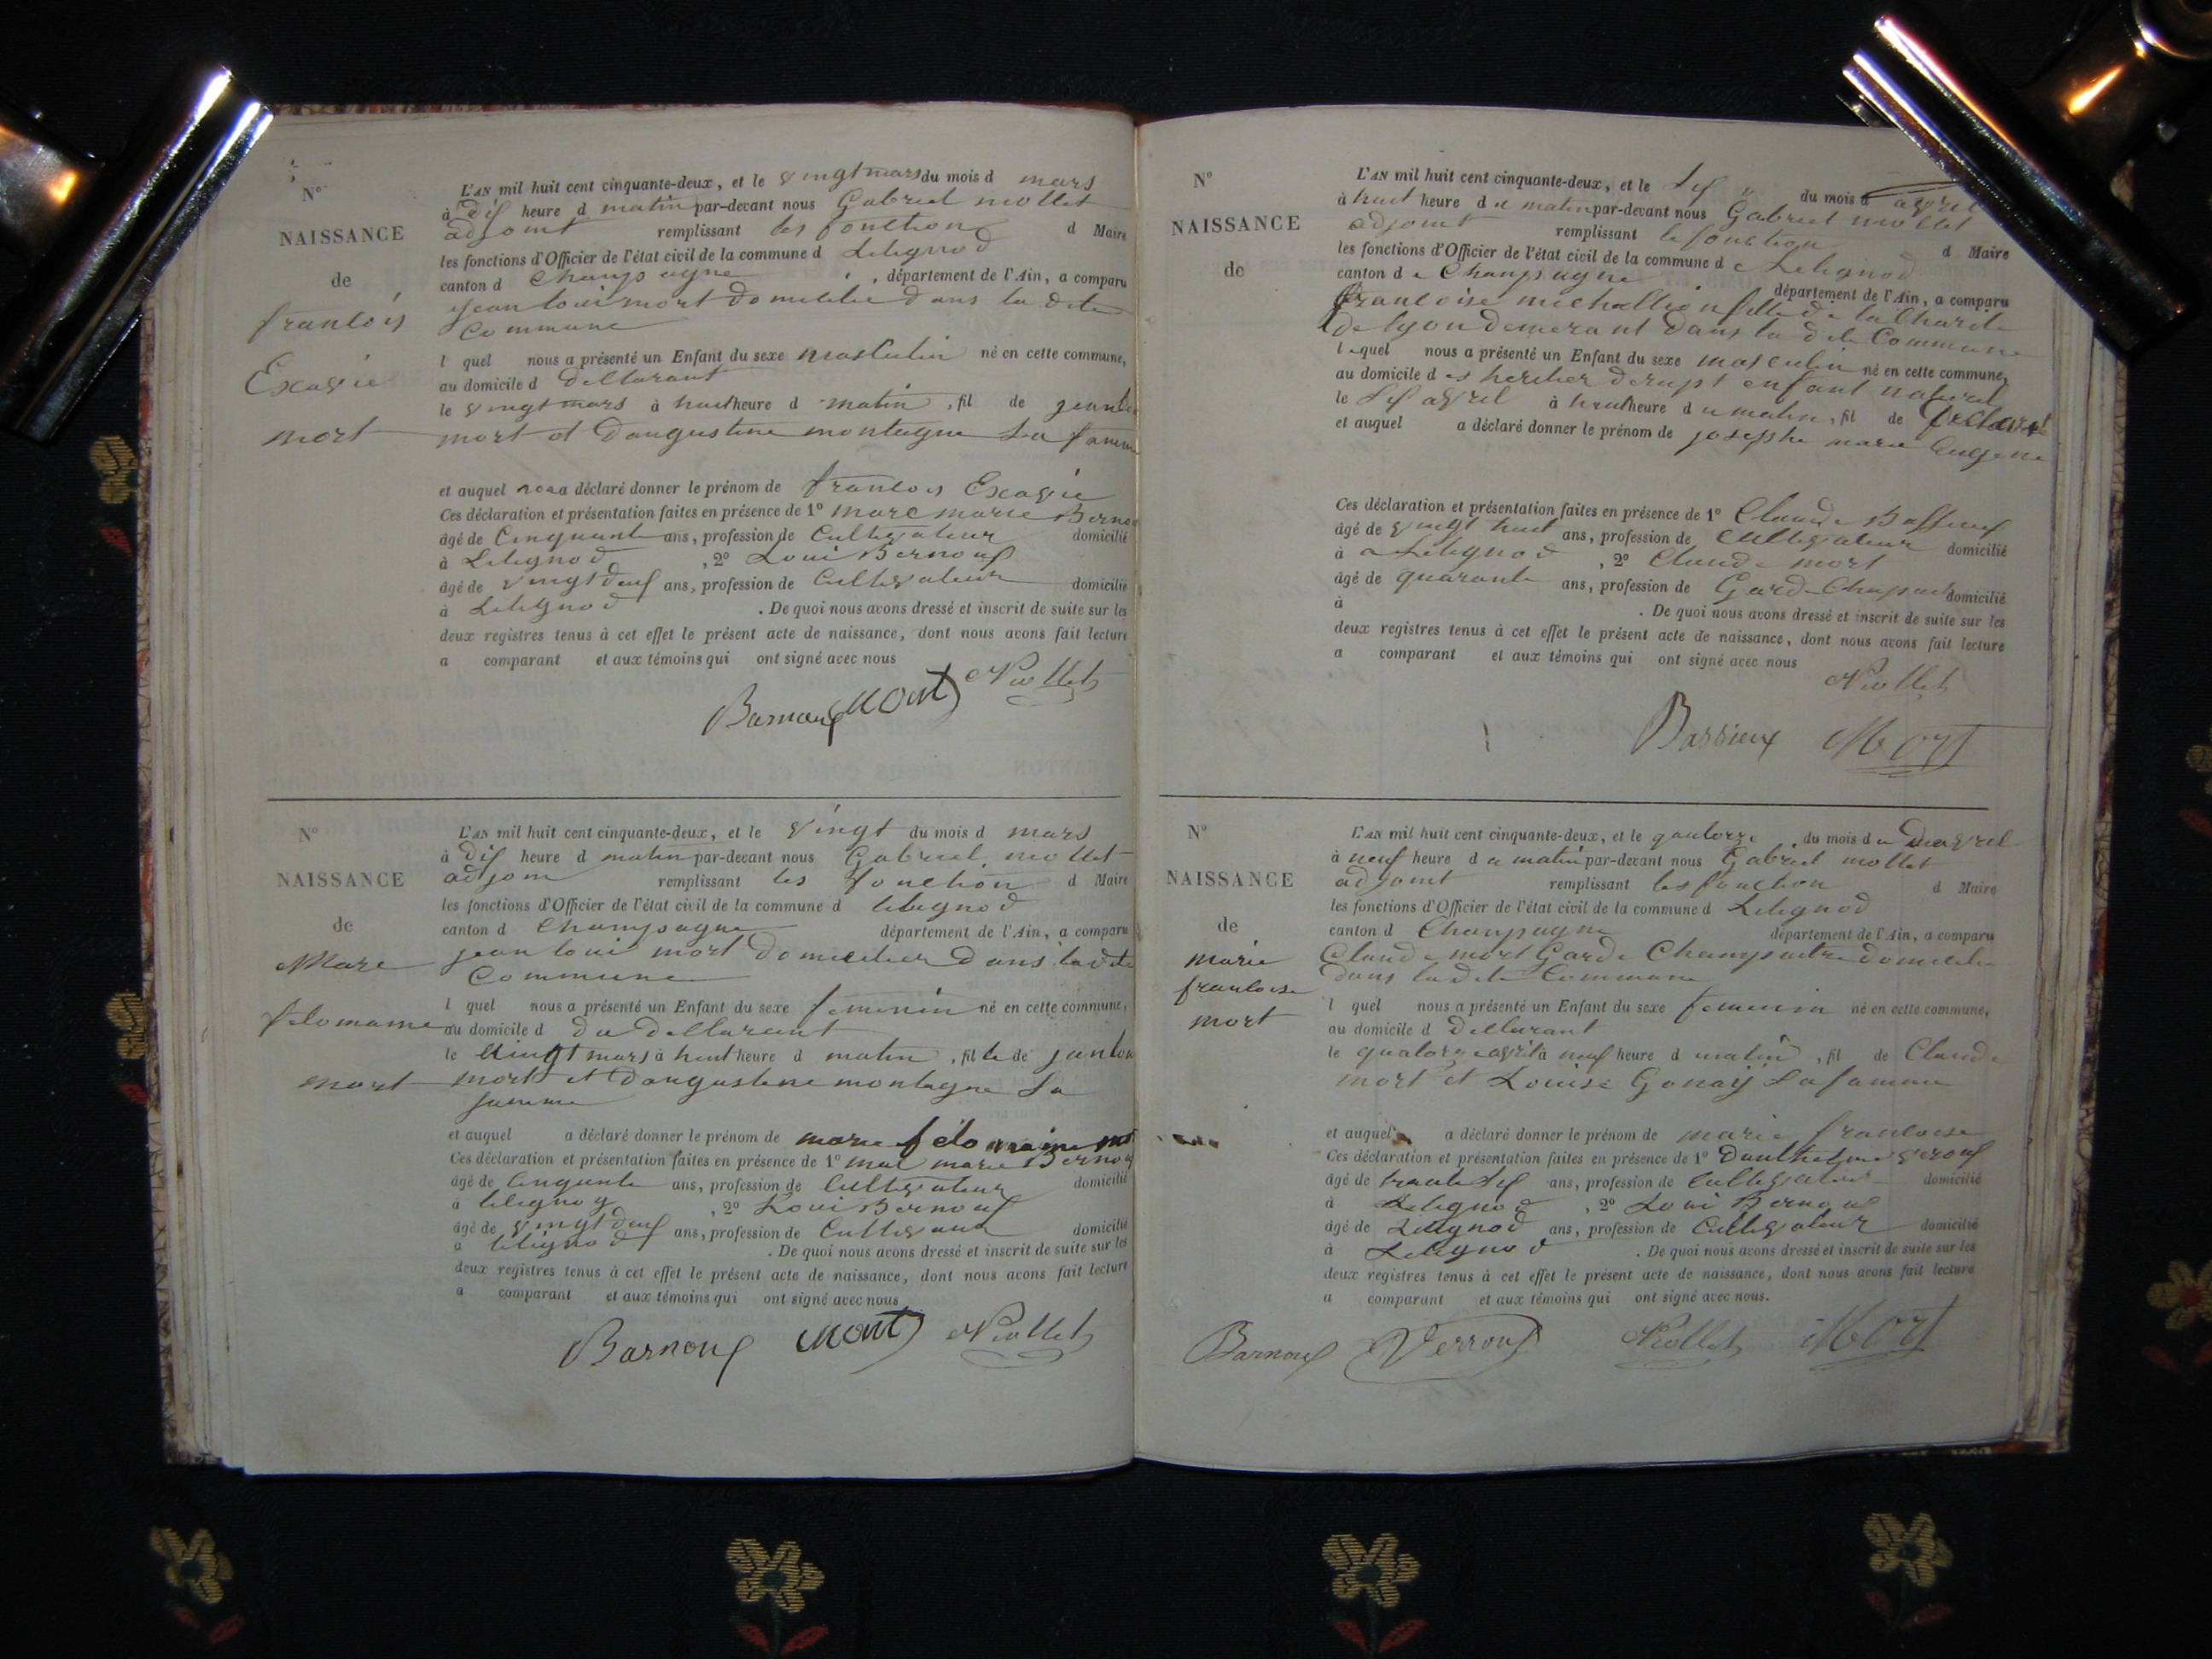 N°
NAISSANCE
de
francois
Exavie
mort
L'AN mil huit cent cinquante-deux, et le vingt mars du mois d mars
à dix heure d matin par-devant nous Gabriel mollet
adjoint remplissant les fonction d Maire
les fonctions d'Officier de l'état civil de la commune d Lilignod
canton d Champagne, département de l'Ain, a comparu
jean loui mort domicilie dans la dite
Commune
l quel nous a présenté un Enfant du sexe masculin né en cette commune,
au domicile d dellarant
le vingt mars à huit heure d matin, fil de jean
mort et daugustine montagne sa famme
et auquel a déclaré donner le prénom de francois Exavie
Ces déclaration et présentation faites en présence de 1° marc marie Berno
âgé de Cinquante ans, profession de Cultivateur domicilié
à Lilignod, 2° Loui Bernouf
âgé de vingt deuf ans, profession de Cultivateur domicilié
à Lilignod. De quoi nous avons dressé et inscrit de suite sur les
deux registres tenus à cet effet le présent acte de naissance, dont nous avons fait lecture
a comparant et aux témoins qui ont signé avec nous
Mollet
Barnouf Mort
N°
NAISSANCE
de
Mare
felomaine
mort
L'AN mil huit cent cinquante-deux, et le vingt du mois d mars
à dix heure d matin par-devant nous Gabriel mollet
adjoin remplissant les fonction d Maire
les fonctions d'Officier de l'état civil de la commune d lilignod
canton d Champagne département de l'Ain, a comparu
jean loui mort domicilier dans la dite
Commune
l quel nous a présenté un Enfant du sexe feminin né en cette commune,
au domicile d du dellarant
le vingt mars à huit heure d matin, fil le de jan lou
mort et daugustine montagne sa
famme
et auquel a déclaré donner le prénom de marie felomaine
Ces déclaration et présentation faites en présence de 1° marie Bernou
âgé de cinquante ans, profession de Cultivateur domicilié
à lilignog, 2° Loui Bernouf
âgé de vingt deuf ans, profession de domicilié
a lilignod. De quoi nous avons dressé et inscrit de suite sur les
deux registres tenus à cet effet le présent acte de naissance, dont nous avons fait lecture
a comparant et aux témoins qui ont signé avec nous
Barnouf Mort Mollet
N°
NAISSANCE
de
L'AN mil huit cent cinquante-deux, et le sif du mois d avril
à huit heure d u matin par-devant nous Gabriel mollet
adjoint remplissant le fonction d Maire
les fonctions d'Officier de l'état civil de la commune d e Lilignod
canton d e Champagne département de l'Ain, a comparu
francoise michallion fille de la Charite
de lyon demerant dans la dite Commune
l quel nous a présenté un Enfant du sexe masculin né en cette commune,
au domicile d es enfant naturel
le sif avril à huit heure d u matin, fil de
et auquel a déclaré donner le prénom de josephe marie Eugene
Ces déclaration et présentation faites en présence de 1° Claude Bassieuf
âgé de vingt huit ans, profession de Cultivateur domicilié
à a Lilignod, 2° Claude mort
âgé de quarante ans, profession de Gard domicilié
à . De quoi nous avons dressé et inscrit de suite sur les
deux registres tenus à cet effet le présent acte de naissance, dont nous avons fait lecture
a comparant et aux témoins qui ont signé avec nous
Mollet
Bassieux Mort
N°
NAISSANCE
de
marie
francoise
mort
L'AN mil huit cent cinquante-deux, et le quatorze du mois d
à neuf heure d u matin par-devant nous Gabriel mollet
adjoint remplissant les fonction d Maire
les fonctions d'Officier de l'état civil de la commune d Lilignod
canton d Champagne département de l'Ain, a comparu
Claude mort Garde Champaitre domicilie
dans la dite Commune
l quel nous a présenté un Enfant du sexe feminin né en cette commune,
au domicile d dellarant
le quatorze avril à neuf heure d matin, fil de Claude
mort et Louise Gonay sa famme
et auquel a déclaré donner le prénom de marie francoise
Ces déclaration et présentation faites en présence de 1° verouf
âgé de trante sif ans, profession de Cultivateur domicilié
à Lilignod, 2° Loui Bernouf
âgé de Lilignod ans, profession de Cultivateur domicilié
à Lilignod. De quoi nous avons dressé et inscrit de suite sur les
deux registres tenus à cet effet le présent acte de naissance, dont nous avons fait lecture
a comparant et aux témoins qui ont signé avec nous.
Barnouf Verrouf Mollet Mort